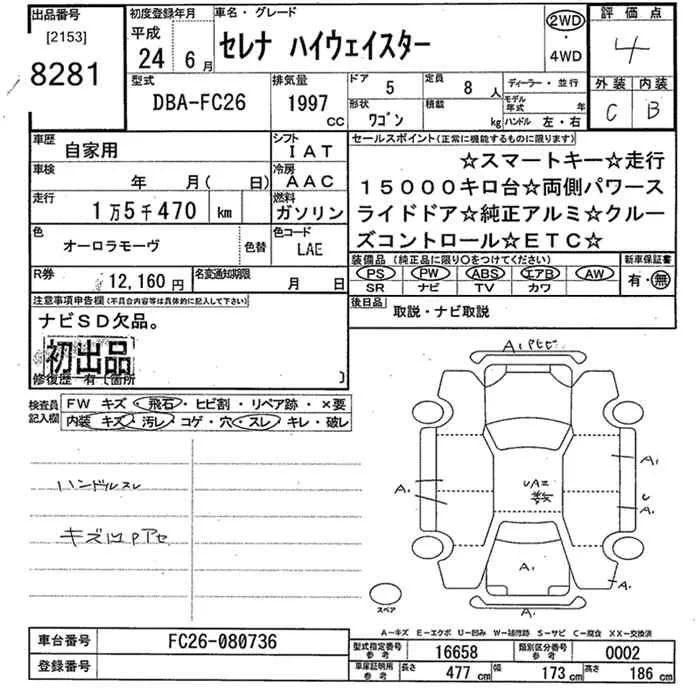 出品番号
[2153]
8281
初度登録年月
平成
24年 6月
車名・グレード
セレナ ハイウェイスター
2WD
・
4WD
評価点
4
外装 内装
C B
型式
DBA-FC26
排気量
1997 CC
ドア 5
定員 8 人
ディーラー・並行
形状 ワゴン
積載 kg
モデル年式 年
ハンドル 左・右
車歴 自家用
シフト IAT
車検 年 月( 日)
冷房 AAC
走行 1万5千470 km
燃料 ガソリン
色 オーロラモーヴ 色替
色コード LAE
R券 12,160円
名変通知期限 月 日
セールスポイント(正常に機能するものに限ります)
☆スマートキー☆走行
15000キロ台☆両側パワース
ライドドア☆純正アルミ☆クルー
ズコントロール☆ETC☆
装備品 (純正品に限り○をつけてください)
PS PW ABS エアB AW
SR ナビ TV カワ
新車保証書
有・無
後日品 取説・ナビ取説
注意事項申告欄(不具合内容等は具体的に記入して下さい)
ナビSD欠品。
初出品
修復歴 有〔箇所 〕
検査員記入欄
FW キズ・飛石・ヒビ割・リペア跡・×要
内装 キズ・汚レ・コゲ・穴・スレ・キレ・破レ
ハンドルスレ
A1
A1
A1
A1
A1
A1
A1
スペア
A-キズ E-エクボ U-凹み W-補修跡 S-サビ C-腐食 XX-交換済
車台番号 FC26-080736
登録番号
型式指定番号 参考 16658
類別区分番号 参考 0002
車庫証明用 参考 長さ 477 cm 幅 173 cm 高さ 186 cm